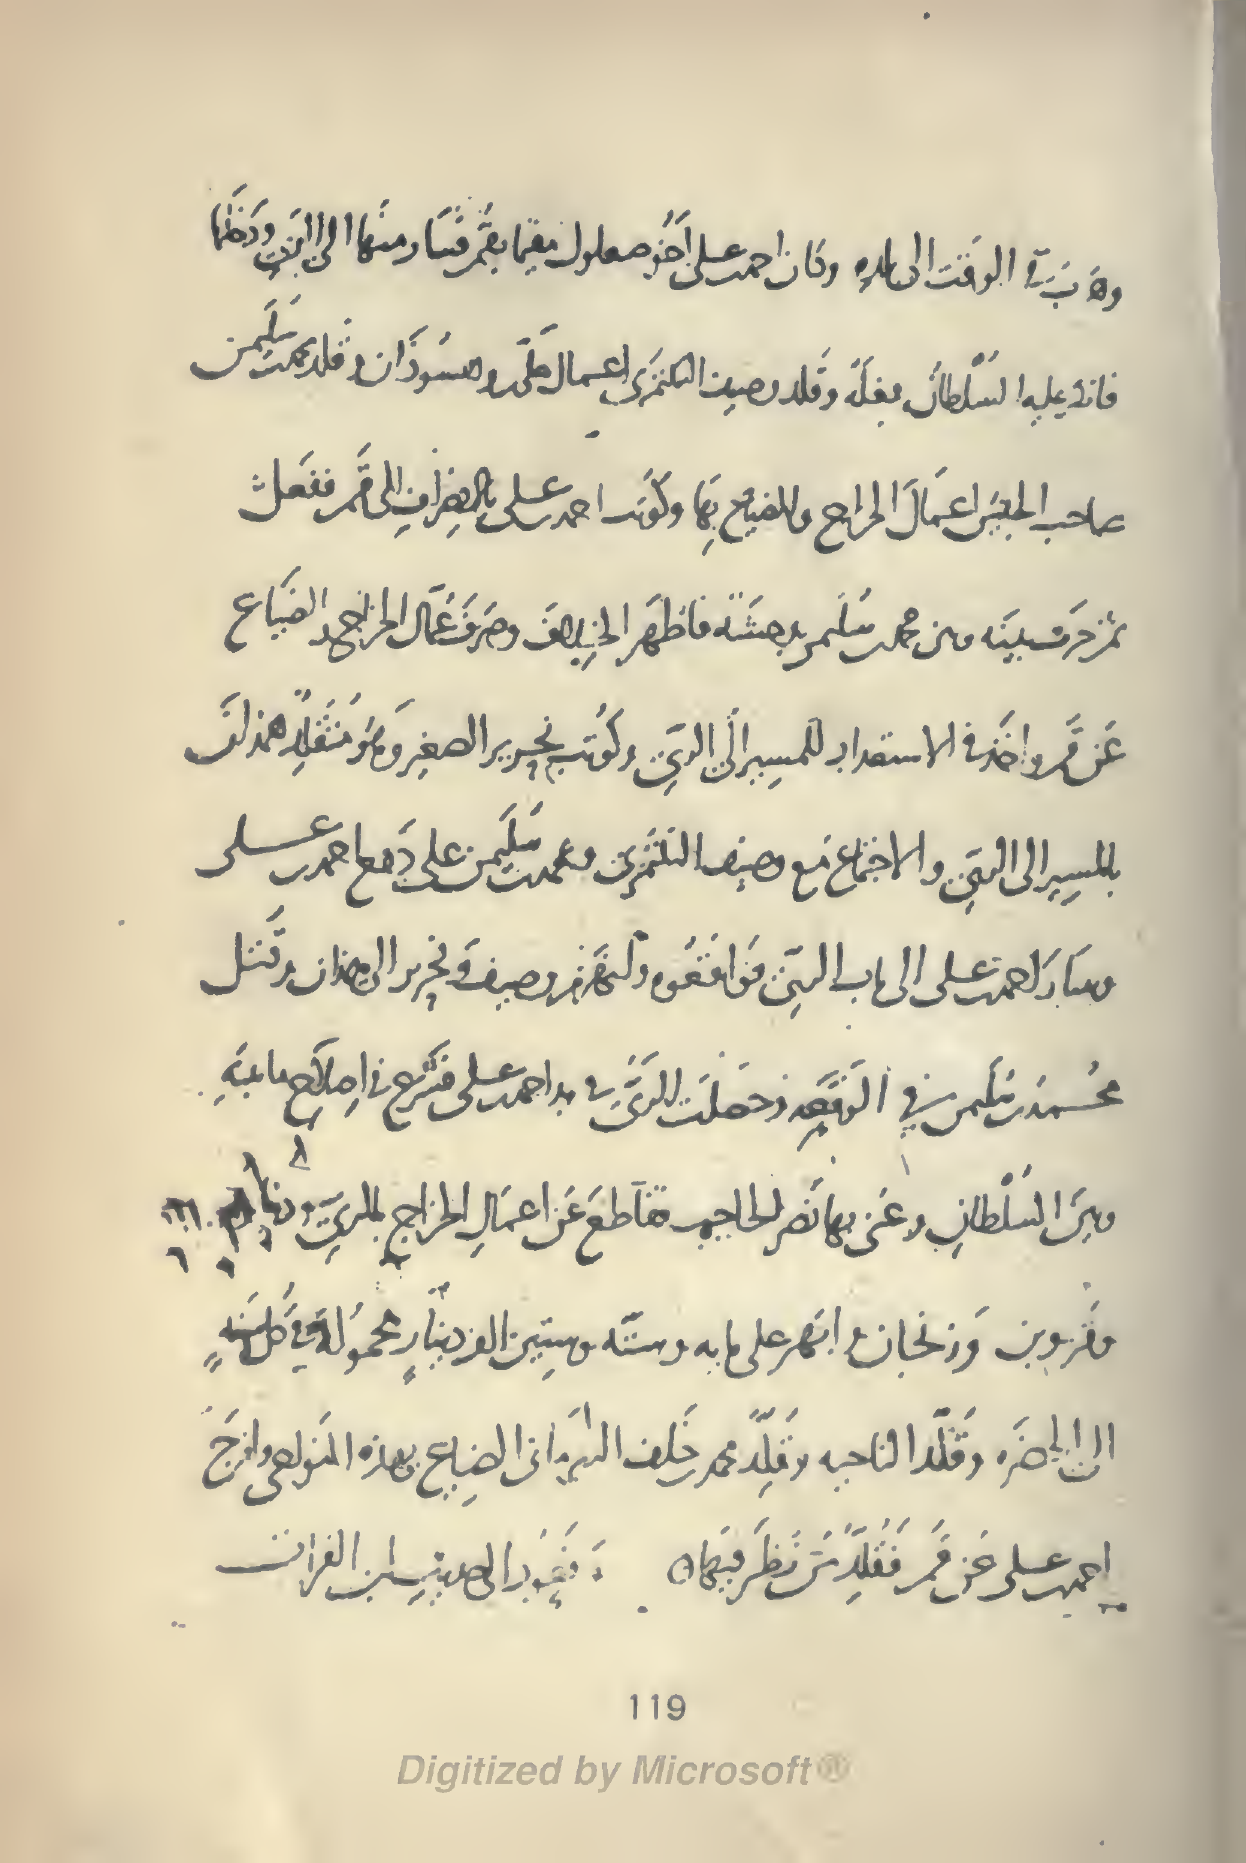 وهرب في الوقت الى بلده وكان احمد بن على اخو صعلوك مقيما بقم فسار منها الى الري ودخلها
فانكر عليه السلطان فعله وقلد وصيف البكتمرى اعمال حلى وهسوذان وقلد محمد بن سليمن
صاحب الجيش اعمال الخراج والضياع بها وكوتب احمد بن على بالانصراف الى قم ففعل
ثم جرت بينه وبين محمد بن سليمن وحشة فاظهر الخلاف وصرف عمال الخراج والضياع
عن قم واخذ في الاستعداد للمسير الى الري وكوتب نحرير الصغير وهو متقلد همذان
بالمسير الى الري والاجتماع مع وصيف البكتمرى ومحمد بن سليمن على دفع احمد بن على
وسار احمد بن على الى باب الري فواقعوه وانهزم وصيف ونحرير الى همذان وقتل
محمد بن سليمن في الوقعة وحصلت الري في يد احمد بن على فشرع في اصلاح ما بينه
وبين السلطان وعنى بها نصر الحاجب فقاطع عن اعمال الخراج بالري ودنباوند
وقزوين وزنجان وابهر على مايه وسته وستين الف دينار محمولة في كل سنه
الى الحضره وقلد الناحيه وقلد محمد بن خلف النيرمانى الضياع بهذه النواحى واخرج
احمد بن على عن قم فقلد من نظر فيها ونعود الى حديث ابن الفرات
119
Digitized by Microsoft®